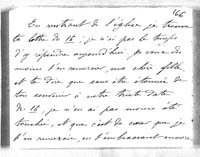 166
En rentrant de l'église, je trouve
ta lettre du 16; je n'ai pas le temps
d'y répondre aujourd'hui. Je veux du
moins t'en remercier, ma chère fille,
et te dire que sans être étonnée de
ton souvenir à notre triste date
du 16, je n'en ai pas moins été
touchée, et que c'est de cœur que je
t'en remercie, en t'embrassant encore